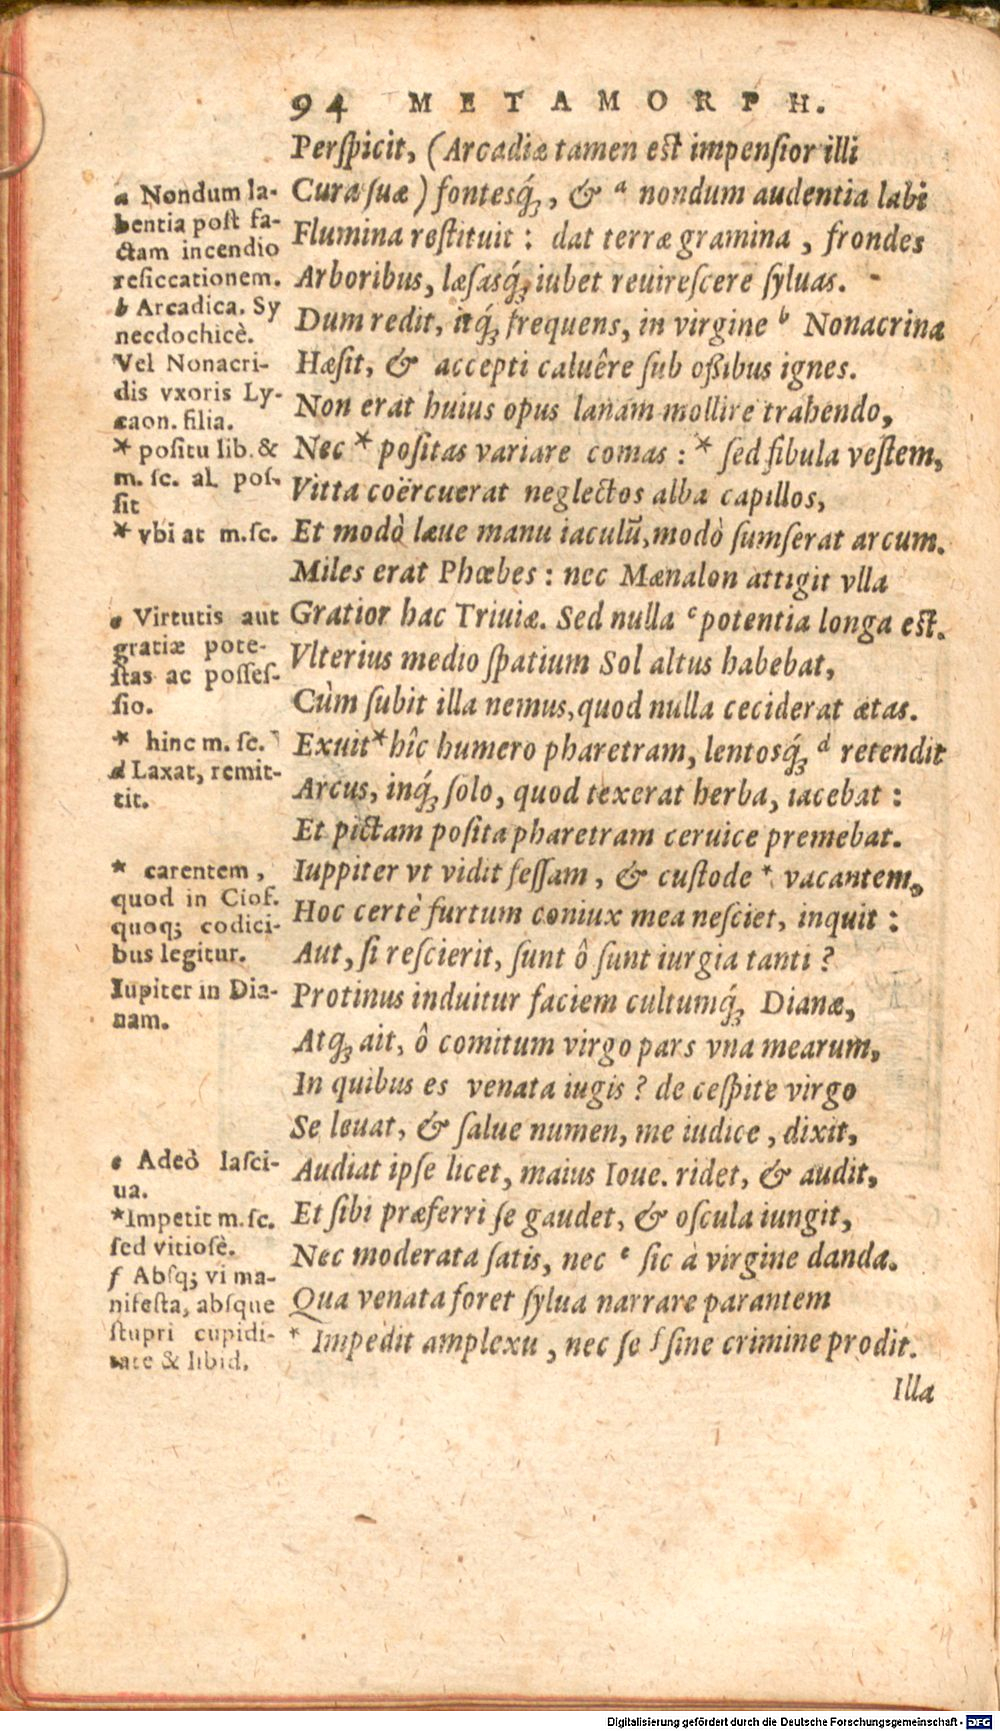 94 METAMORPH.
Perſpicit, (Arcadiæ tamen eſt impenſior illi
Cura ſuæ) fontesq́ꝫ, & a nondum audentia labi
Flumina reſtituit: dat terræ gramina, frondes
Arboribus, læſasq́ꝫ iubet reuireſcere ſyluas.
Dum redit, itq́ꝫ frequens, in virgine b Nonacrina
Hæſit, & accepti caluêre ſub oſſibus ignes.
Non erat huius opus lanam mollire trahendo,
Nec * poſitas variare comas: * ſed fibula veſtem,
Vitta coërcuerat neglectos alba capillos,
Et modò læue manu iaculū, modò ſumſerat arcum.
Miles erat Phœbes: nec Mænalon attigit vlla
Gratior hac Triuiæ. Sed nulla c potentia longa eſt.
Vlterius medio ſpatium Sol altus habebat,
Cùm ſubit illa nemus, quod nulla ceciderat ætas.
Exuit * hîc humero pharetram, lentosq́ꝫ d retendit
Arcus, inq́ꝫ ſolo, quod texerat herba, iacebat:
Et pictam poſita pharetram ceruice premebat.
Iuppiter vt vidit feſſam, & cuſtode * vacantem,
Hoc certè furtum coniux mea neſciet, inquit:
Aut, ſi reſcierit, ſunt ô ſunt iurgia tanti?
Protinus induitur faciem cultumq́ꝫ Dianæ,
Atqꝫ ait, ô comitum virgo pars vna mearum,
In quibus es venata iugis? de ceſpite virgo
Se leuat, & ſalue numen, me iudice, dixit,
Audiat ipſe licet, maius Ioue. ridet, & audit,
Et ſibi præferri ſe gaudet, & oſcula iungit,
Nec moderata ſatis, nec e ſic à virgine danda.
Qua venata foret ſylua narrare parantem
* Impedit amplexu, nec ſe f ſine crimine prodit.
Illa
a Nondum la-
bentia poſt fa-
ctam incendio
reſiccationem.
b Arcadica. Sy
necdochicè.
Vel Nonacri-
dis vxoris Ly-
caon. filia.
* poſitu lib. &
m. ſc. al. poſ-
ſit
* vbi at m. ſc.
c Virtutis aut
gratiæ pote-
ſtas ac poſſeſ-
ſio.
* hinc m. ſc.
d Laxat, remit-
tit.
* carentem,
quod in Ciof.
quoqꝫ codici-
bus legitur.
Iupiter in Dia-
nam.
e Adeò laſci-
ua.
* Impetit m. ſc.
ſed vitioſè.
f Abſqꝫ vi ma-
nifeſta, abſque
ſtupri cupidi-
tate & libid.
Digitalisierung gefördert durch die Deutsche Forschungsgemeinschaft - DFG